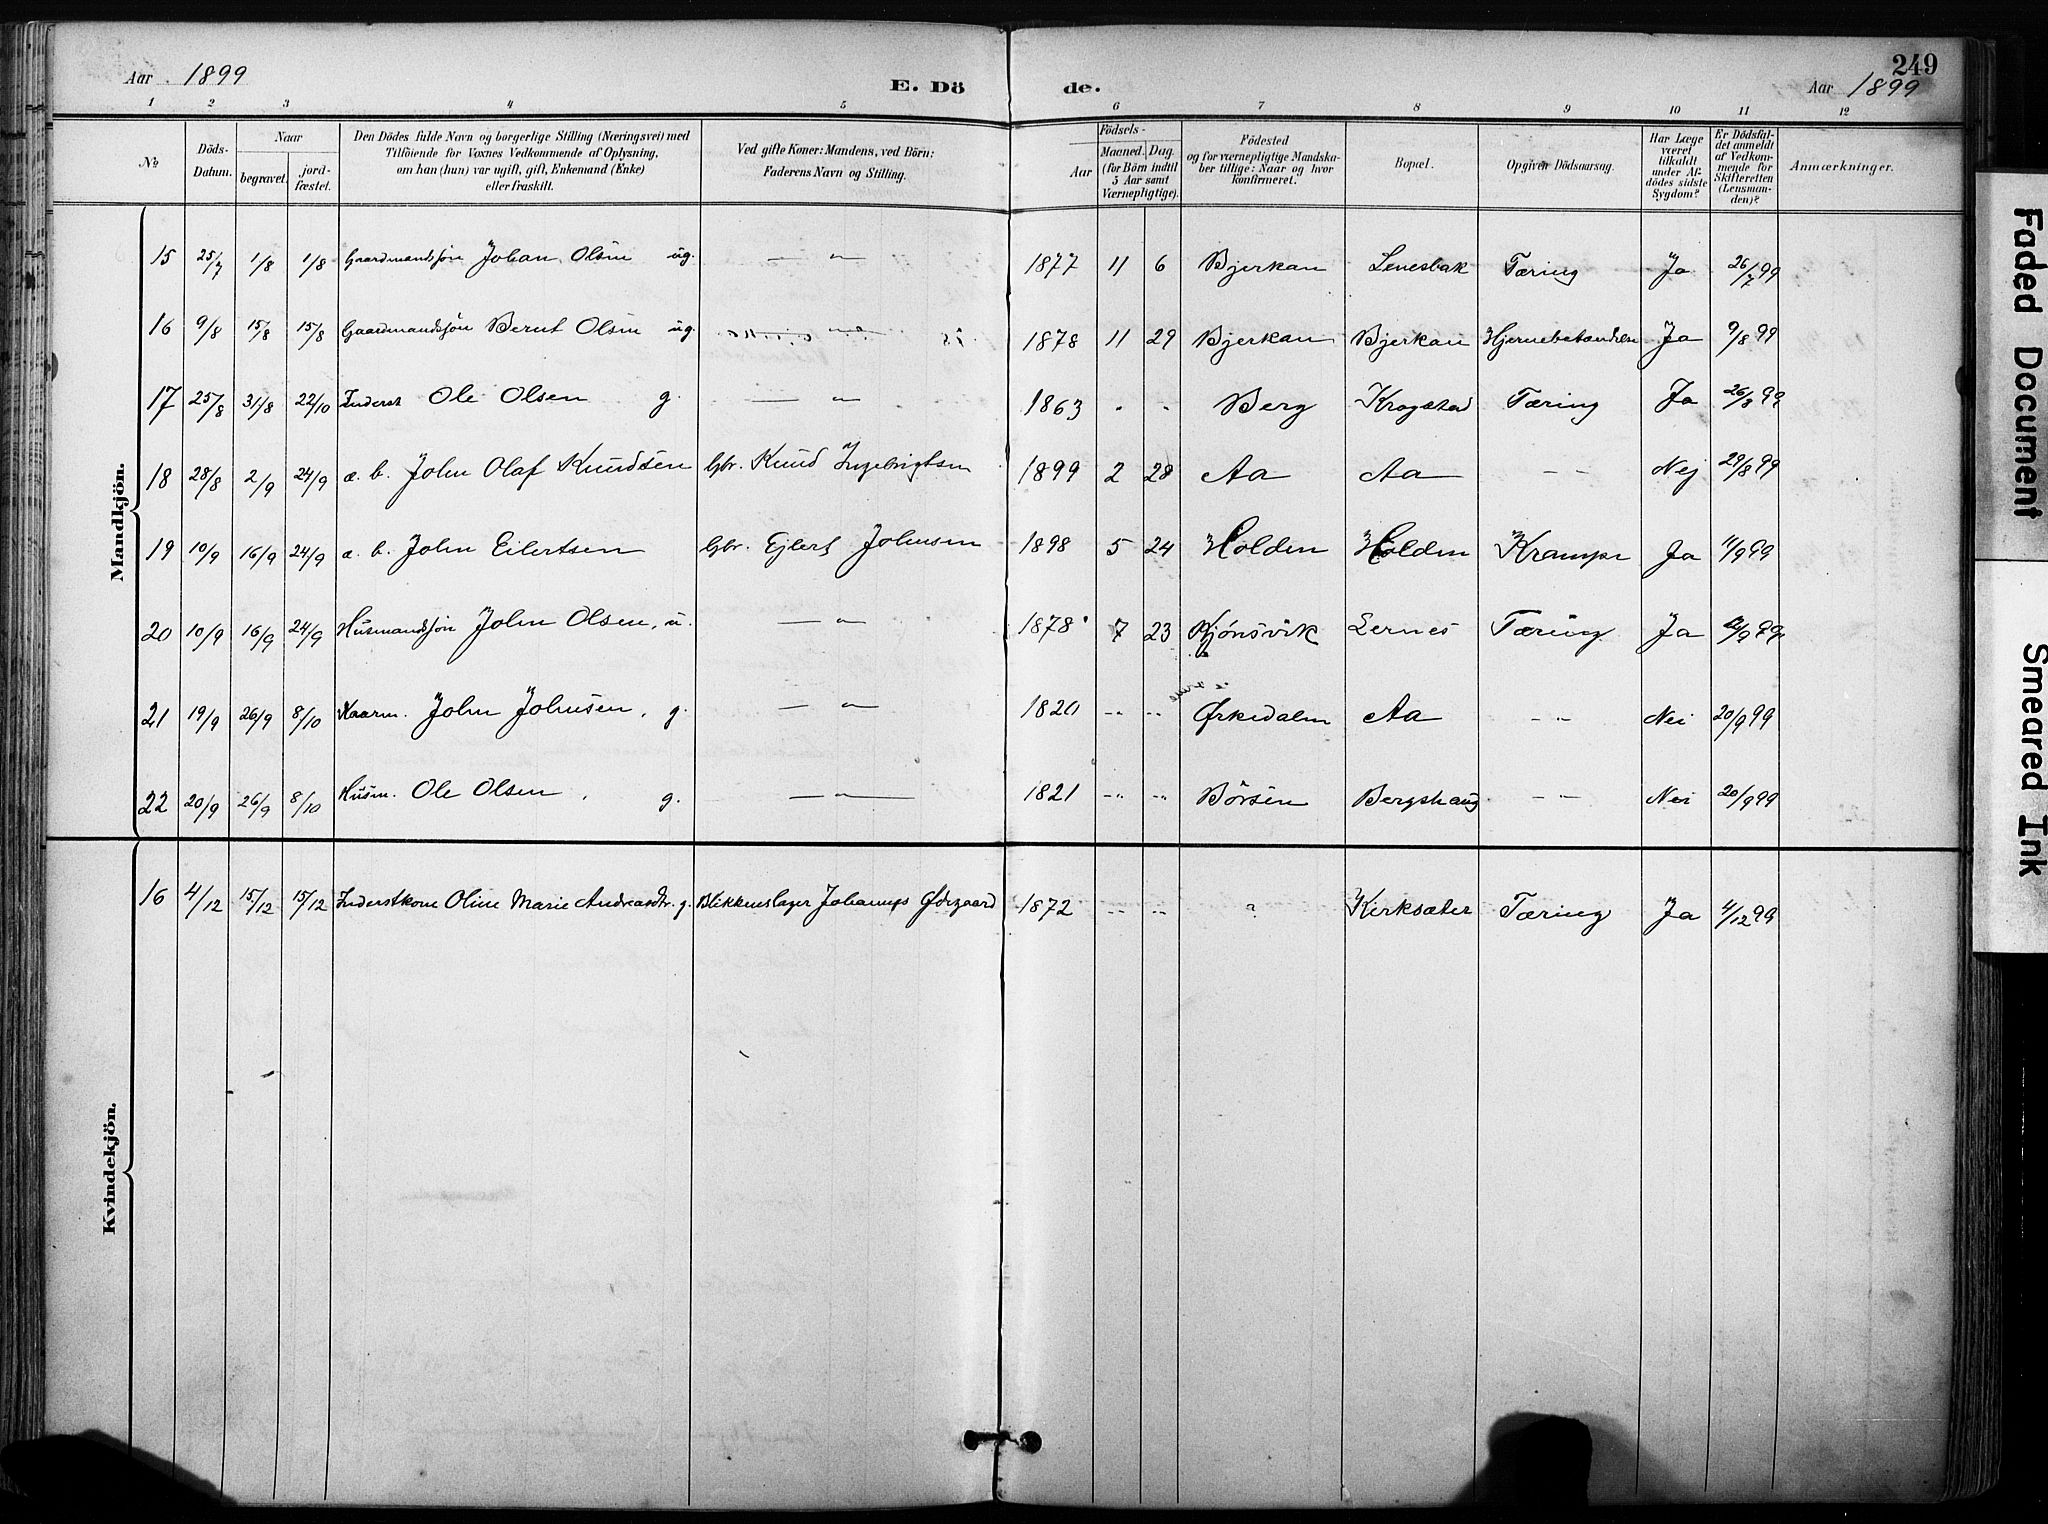 249
Aar 1899 E. Dö de. Aar 1899
1 2 3 4 5 6 7 8 9 10 11 12
No
Döds-
Datum.
Naar
begravet.
jord-
fæstet.
Den Dödes fulde Navn og borgerlige Stilling (Næringsvei) med
Tilföiende for Voxnes Vedkommende af Oplysning,
om han (hun) var ugift, gift, Enkemand (Enke)
eller fraskilt.
Ved gifte Koner: Mandens, ved Börn:
Faderens Navn og Stilling.
Födsels-
Aar
Maaned. Dag.
(for Börn indtil
5 Aar samt
Værnepligtige).
Födested
og for værnepligtige Mandska-
ber tillige: Naar og hvor
konfirmeret.
Bopæl.
Opgiven Dödsaarsag.
Har Læge
været
tilkaldt
under Af-
dödes sidste
Sygdom?
Er Dödsfal-
det anmeldt
af Vedkom-
mende for
Skifteretten
(Lensman-
den)?
Anmærkninger.
Mandkjön.
15 25/7 1/8 1/8 Gaardmandssön Johan Olsen ug. — " — 1877 11 6 Bjerkan Lenesbak Tæring Ja 26/7 99
16 9/8 15/8 15/8 Gaardmandssön Bernt Olsen ug. — " — 1878 11 29 Bjerkan Bjerkan Hjernebetændelse Ja 9/8 99
17 25/8 31/8 22/10 Inderst Ole Olsen g. — " — 1863 " " Berg Krogstad Tæring Ja 26/8 99
18 28/8 2/9 24/9 æ. b. John Olaf Knudsen Gbr. Knud Ingebrigtsen 1899 2 28 Aa Aa — — Nej 29/8 99
19 10/9 16/9 24/9 æ. b. John Eilertsen Gbr. Ejlert Johnsen 1898 5 24 Holden Holden Krampe Ja 11/9 99
20 10/9 16/9 24/9 Husmandssön John Olsen, u. — " — 1878 7 23 Kjönsvik Lernes Tæring Ja 12/9 99
21 19/9 26/9 8/10 Kaarm. John Johnsen, g. — " — 1820 -"- -"- Ørkedalen Aa -"- Nei 20/9 99
22 20/9 26/9 8/10 Husm. Ole Olsen g. — " — 1821 -"- -"- Börsen Bergshaug -"- Nei 20/9 99
Kvindekjön.
16 4/12 15/12 15/12 Inderstkone Oline Marie Andreasdtr. g. Blikkenslager Johannes Ødegaard 1872 -"- -"- ? Kirksæter Tæring Ja 4/12 99
Faded Document
Smeared Ink